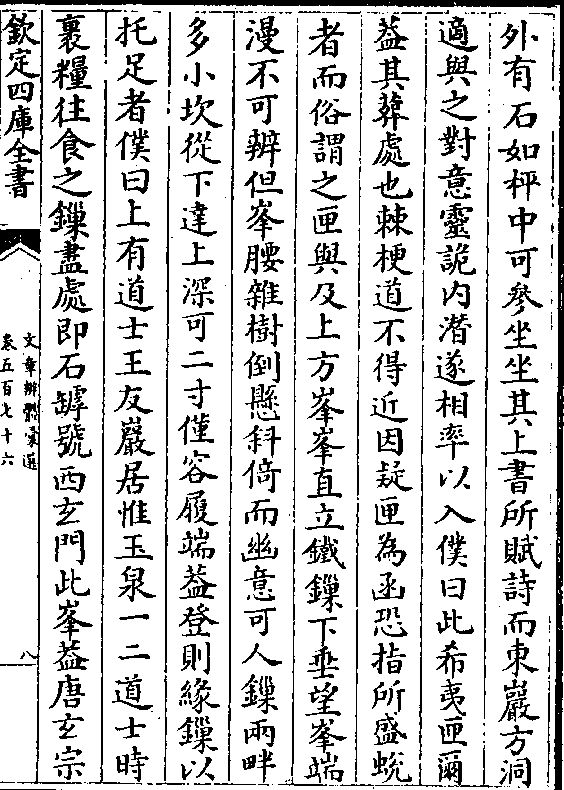 外有石如枰中可參坐坐其上書所賦詩而東巖方洞
適與之對意靈詭内潛遂相率以入僕曰此希夷匣爾
葢其葬處也棘梗道不得近因疑匣為函恐指所盛蛻
者而俗謂之匣與及上方峯峯直立鐵鏁下垂望峯端
漫不可辨但峯腰雜樹倒懸斜倚而幽意可人鏁兩畔
多小坎從下達上深可二寸僅容履端葢登則緣鏁以
托足者僕曰上有道士王友巖居惟玉泉一二道士時
裹糧往食之鏁盡處即石罅號西玄門此峯葢唐玄宗
欽定四庫全書
文章辨體彙選
卷五百七十六
八